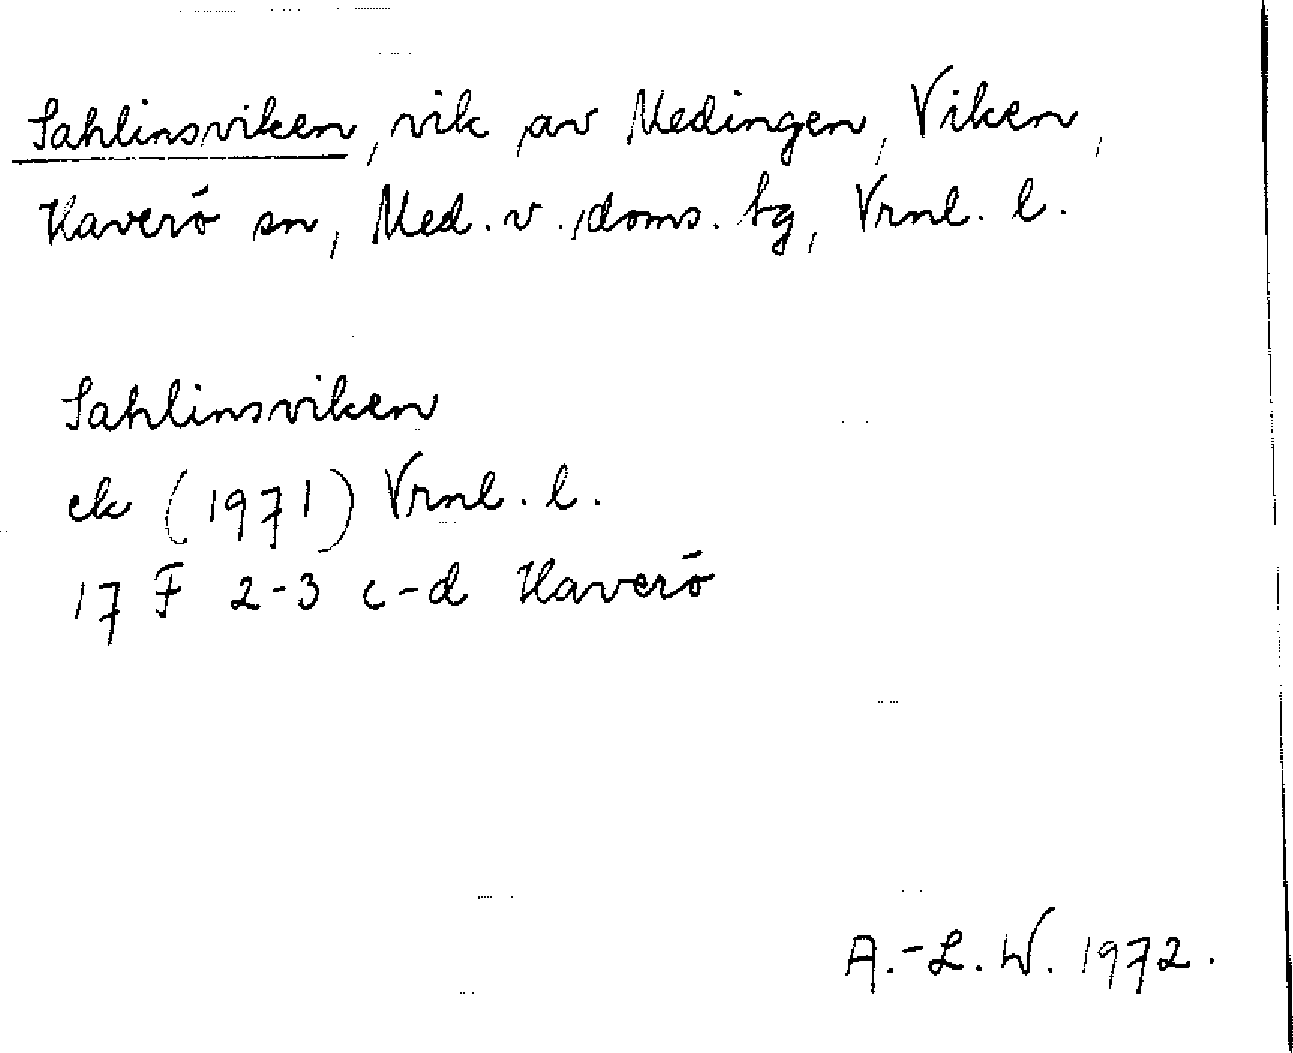 Sahlinsviken, vik av Medingen, Viken,
Haverö sn, Med. v. doms. tg, Vrnl. l.
Sahlinsviken
ek (1971) Vrnl. l.
17 F 2-3 c-d Haverö
A.-L. W. 1972.